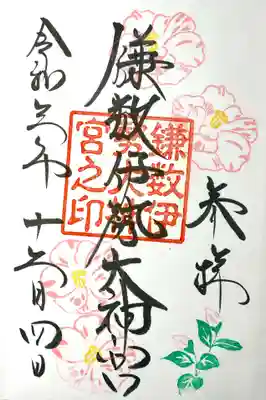 奉拝
鎌数伊勢大神宮
鎌数伊
勢大神
宮之印
令和六年十二月四日